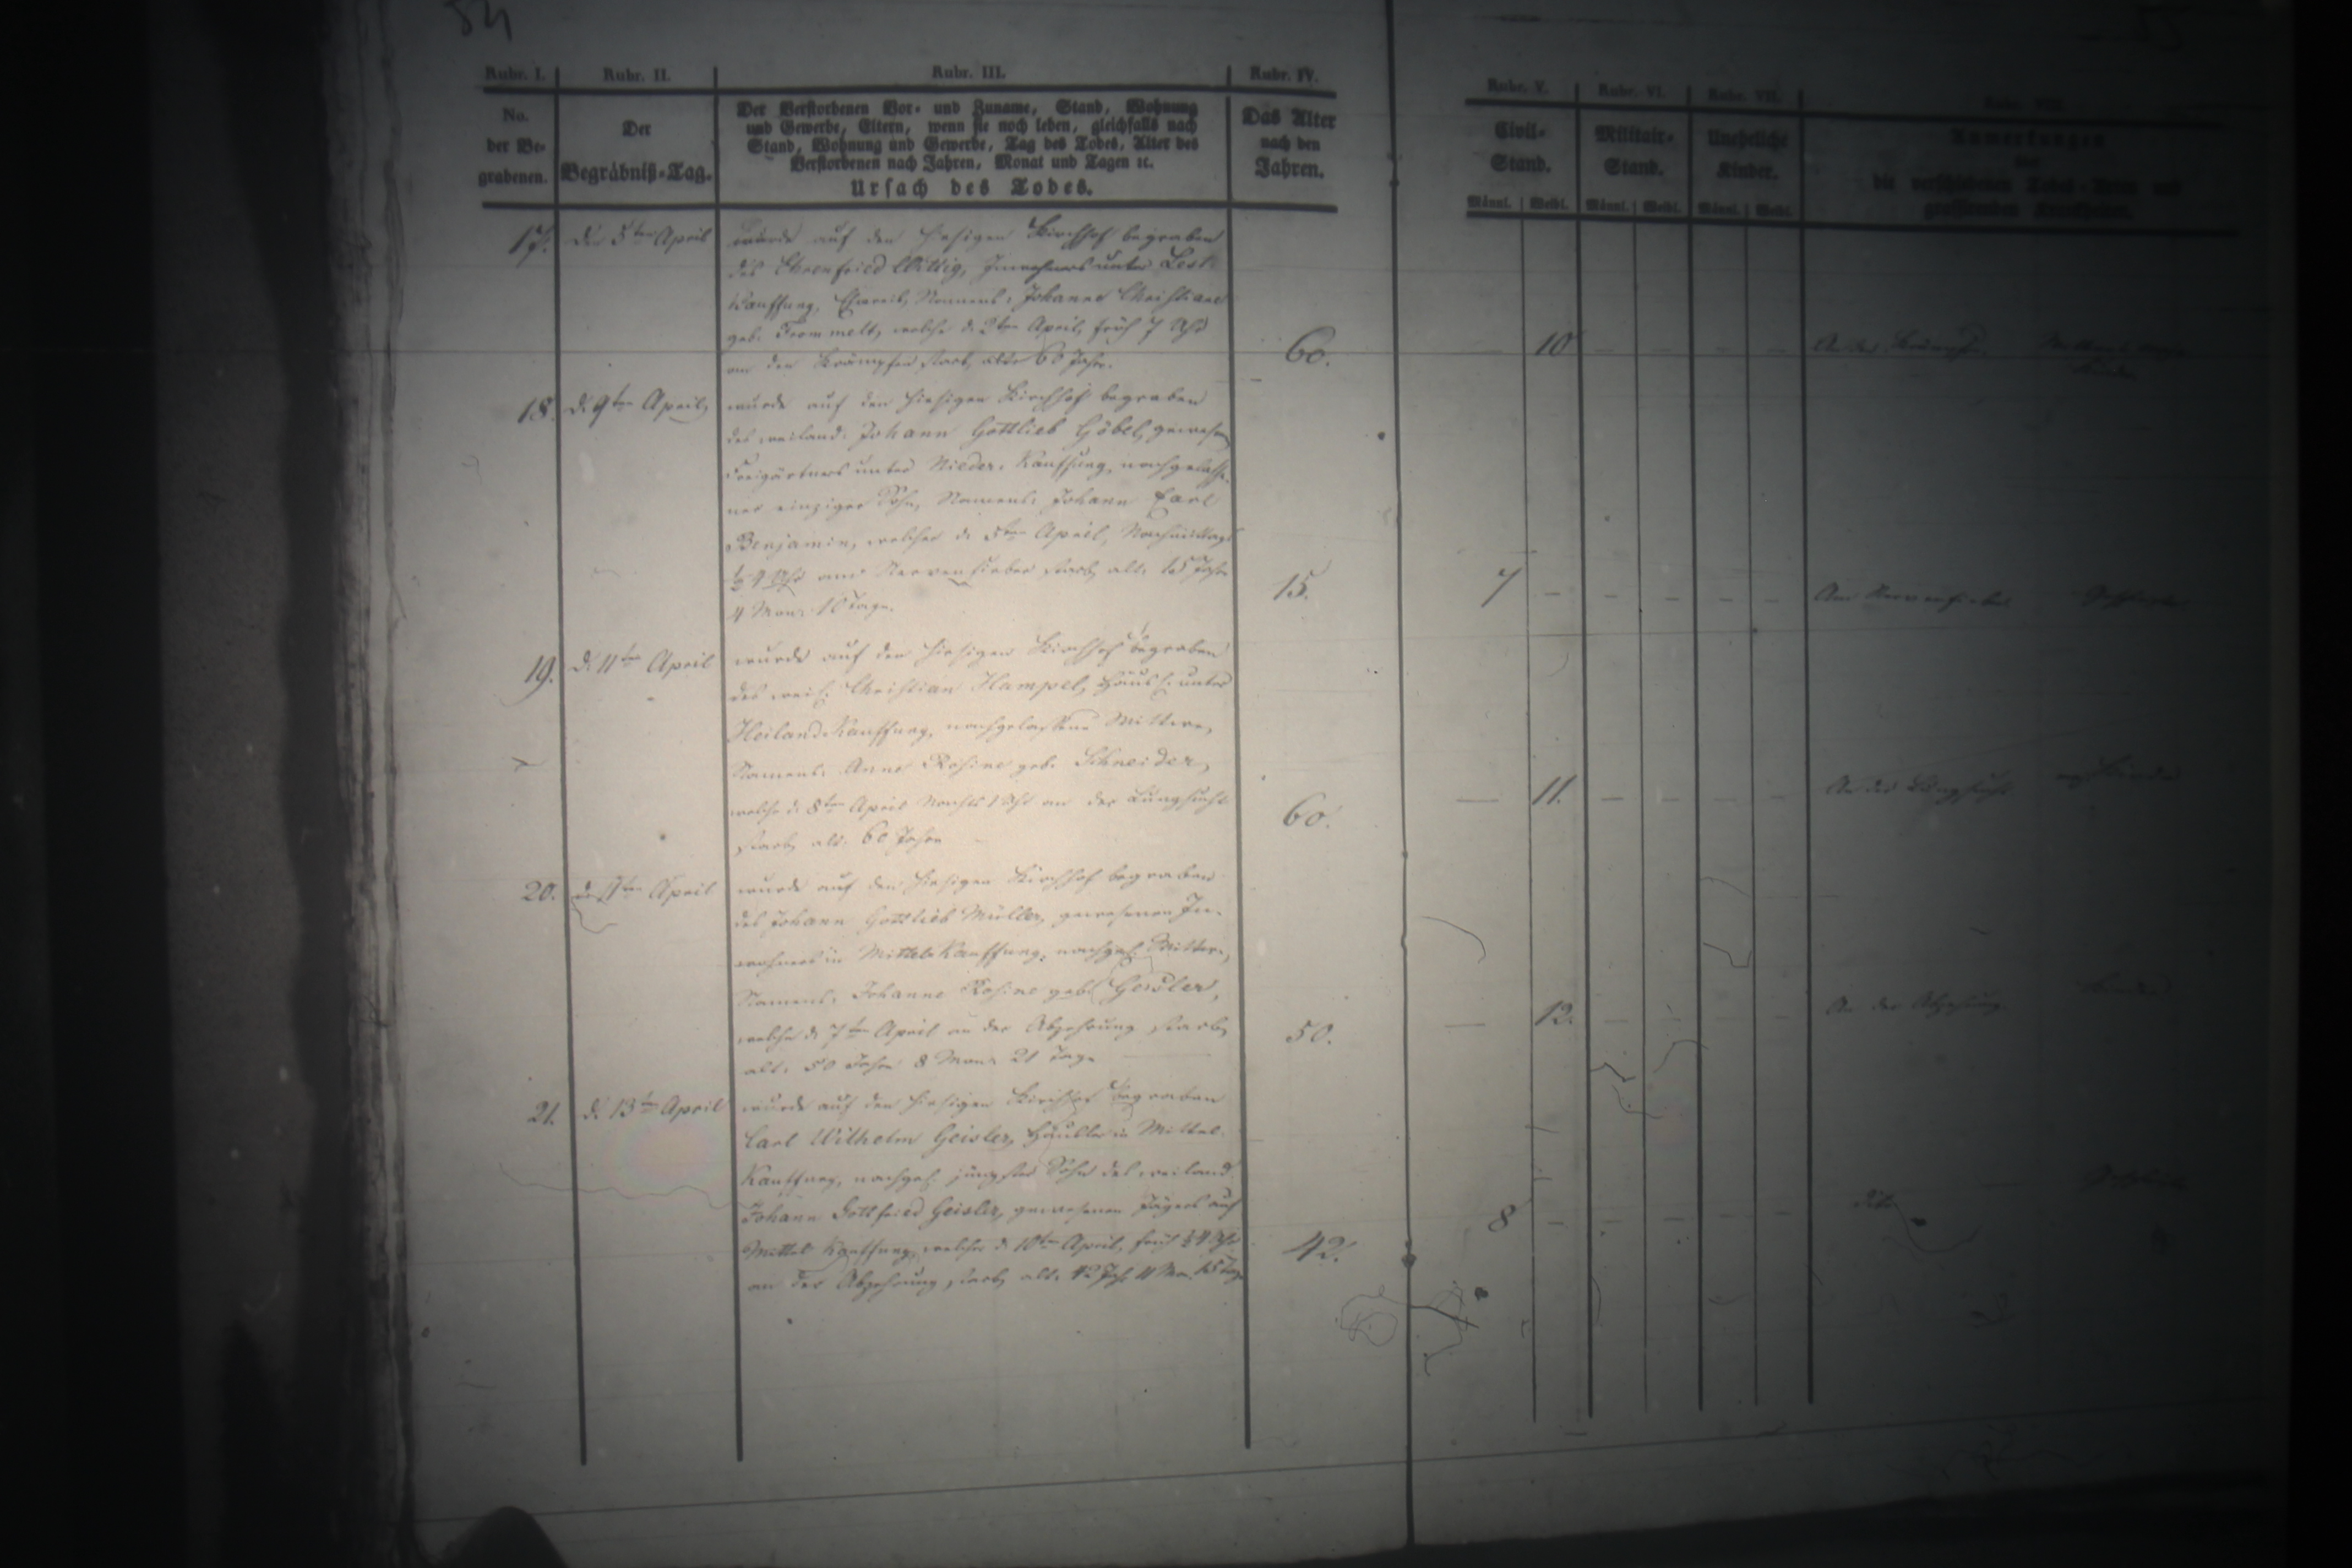 54
Rubr. I.
Rubr. II.
Rubr. III.
Rubr. IV.
Rubr. V.
Rubr. VI.
Rubr. VII.
Rubr. VIII.
No.
der Be-
grabenen.
Der
Begräbniß-Tag.
Der Verstorbenen Vor- und Zuname, Stand, Wohnung
und Gewerbe, Eltern, wenn sie noch leben, gleichfalls nach
Stand, Wohnung und Gewerbe, Tag des Todes, Alter des
Verstorbenen nach Jahren, Monat und Tagen ꝛc.
Ursach des Todes.
Das Alter
nach den
Jahren.
Civil-
Stand.
Männl. Weibl.
Militair-
Stand.
Männl. Weibl.
Uneheliche
Kinder.
Männl. Weibl.
Anmerkungen
über
die verschiedenen Todes-Arten und
grassirenden Krankheiten.
17. Den 5ten April
wurde auf den hiesigen Kirchhof begraben
des Ehrenfried Wittig, Inwohners unter Lest
Kauffung, Eheweib, Namens: Johanne Christiane
geb. Frommelt, welche d. 2ten April, früh 7 Uhr
an den Krämpfen starb, alt 60 Jahr.
60.
10
18. d. 9ten April,
wurde auf den hiesigen Kirchhof begraben
des weiland: Johann Gottlieb Göbel, gewesen
Freigärtners unter Nieder-Kauffung, nachgelasse-
ner einziger Sohn, Namens: Johann Carl
Benjamin, welcher d. 5ten April, Nachmittags
Uhr am Nervenfieber starb, alt: 15 Jahr
4 Mon: 10 Tage.
15.
7
Am Nervenfieber
19. d. 11ten April
wurde auf den hiesigen Kirchhof begraben
des weil. Christian Hampel, Häusl. unter
Heiland-Kauffung, nachgelassene Wittwe,
Namens: Anne Rosine geb. Schneider,
welche d. 8ten April Nachts 1 Uhr an der Lungsucht
starb, alt: 60 Jahre
60.
11.
An der Lungsucht
20. April
wurde auf den hiesigen Kirchhof begraben
des Johann Gottlieb Müller, gewesenen In-
wohners in Mittel-Kauffung, nachgel. Wittwe,
Namens: Johanne Rosine geb. Geisler,
welche d. 7ten April an der Abzehrung starb,
alt: 50 Jahre 8 Mon: 21 Tage
50.
12.
An der Abzehrung
21. d. 13ten April
wurde auf den hiesigen Kirchhof begraben
Carl Wilhelm Geisler, Häusler in Mittel-
Kauffung, nachgel. jüngster Sohn des weiland
Johann Gottfried Geisler, gewesenen Jägers auf
Mittel Kauffung, welcher d. 10ten April, früh Uhr
an der Abzehrung starb, alt: 42 Jahr 11 Mon. 15 Tage
42.
8